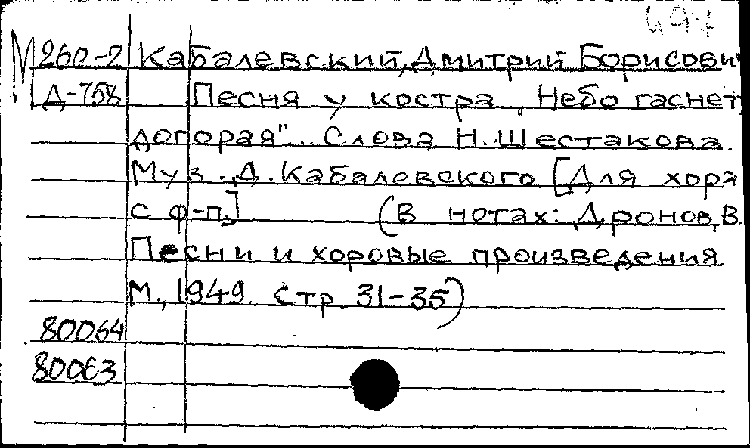 М 260-2 Кабалевский, Дмитрий Борисович
Д-758 Песня у костра „Небо гаснет,
догорая". Слова Н. Шестакова.
Муз. Д. Кабалевского [Для хора
с ф-п.] (В нотах: Дронов, В.
Песни и хоровые произведения.
М., 1949. Стр. 31-35)
80064
80063